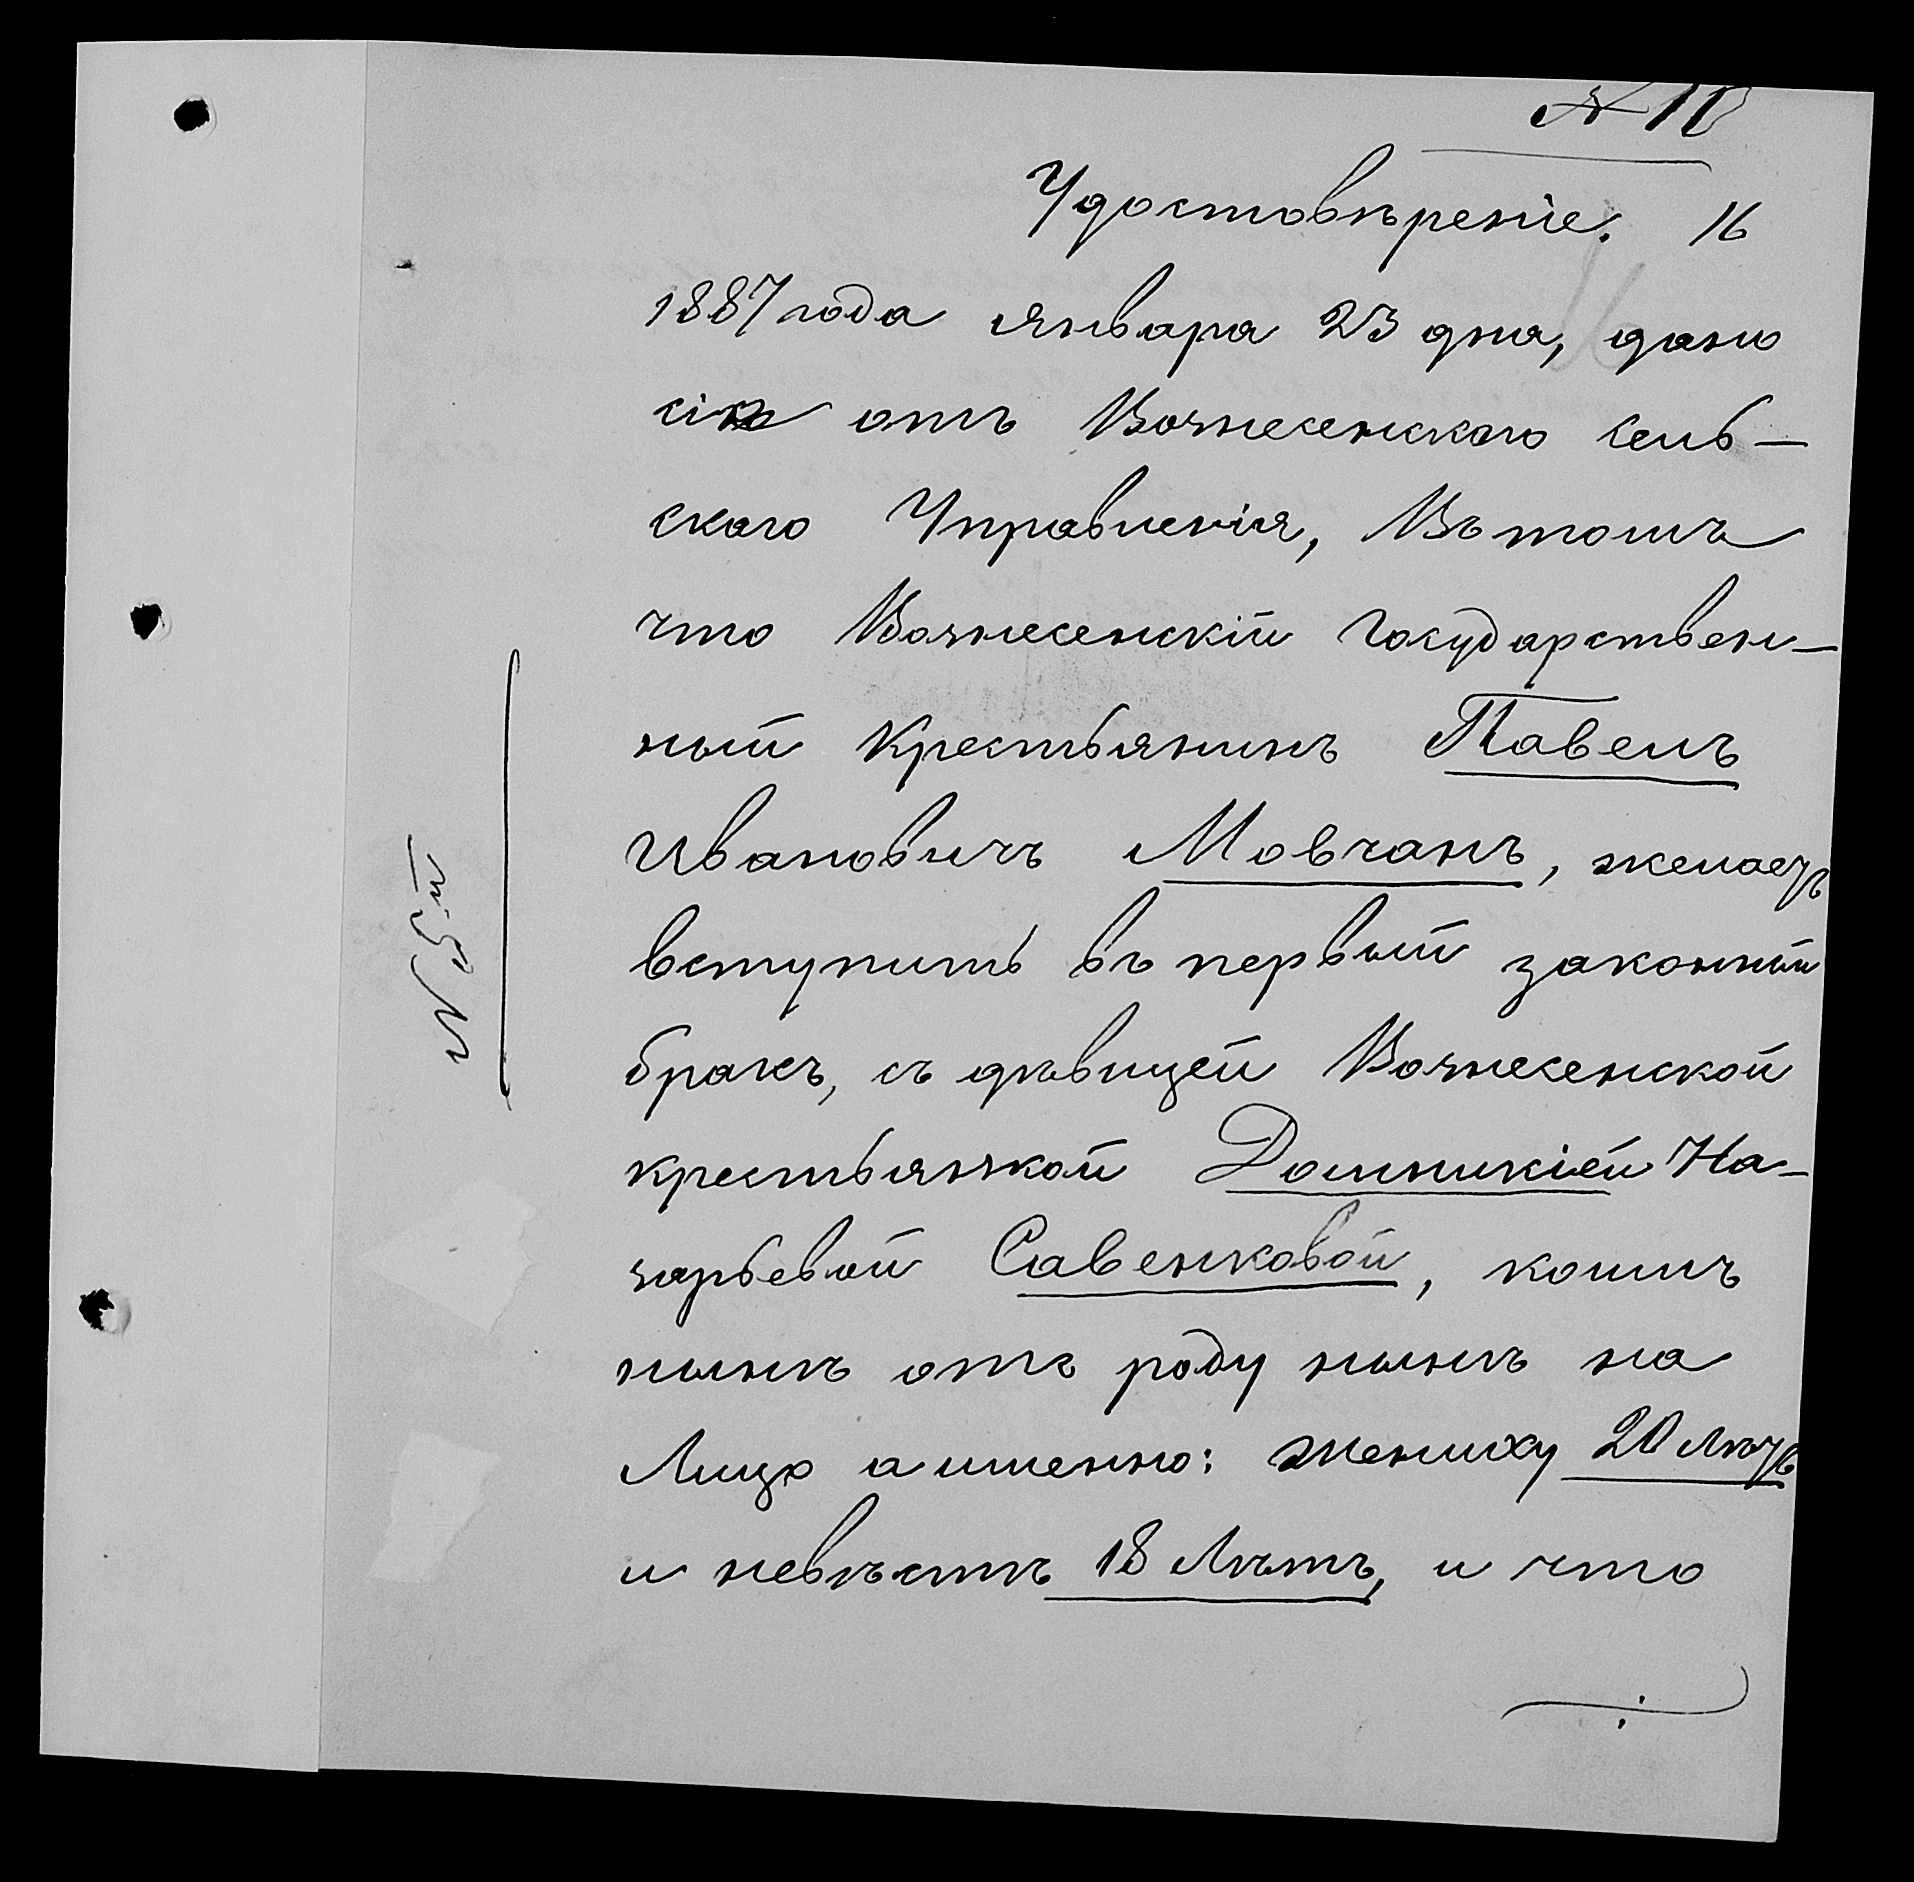 № 10
Удостовѣреніе. 16
1887 года января 23 дня, дано
сіе отъ Вознесенскаго сель-
скаго Управленія, Въ томъ
что Вознесенскій Государствен-
ный крестьянинъ Павелъ
Ивановичъ Мовчанъ, желаетъ
вступить въ первый законный
бракъ, съ дѣвицей Вознесенской
крестьянкой Домникіей На-
зарьевой Савенковой, коимъ
нынѣ отъ роду нынѣ на
Лицо а именно: жениху 20 лѣтъ
и невѣстѣ 18 лѣтъ, и что